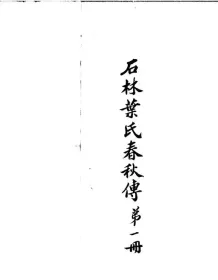 石林葉氏春秋傳 第一冊